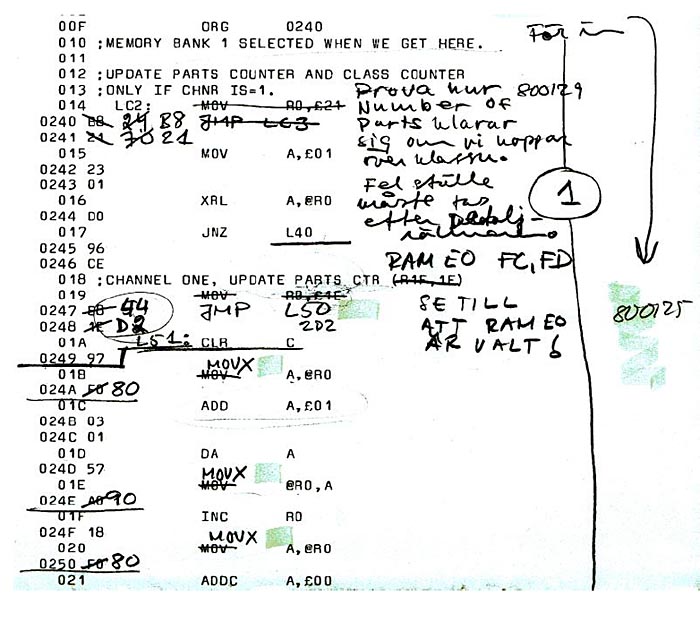 00F ORG 0240
010 ;MEMORY BANK 1 SELECTED WHEN WE GET HERE.
011
012 ;UPDATE PARTS COUNTER AND CLASS COUNTER
013 ;ONLY IF CHNR IS=1. Prova hur 800129
014 LC2: MOV R0,£21 Number of
0240 B8 24 B8 JMP LC3 parts klarar
0241 21 21 sig om vi hoppar
015 MOV A,£01 över klassn.
0242 23
0243 01 Fel ställe
016 XRL A,@R0 måste tas 1
0244 D0 efter
017 JNZ L40
0245 96
0246 CE RAM E0 FC,FD
018 ;CHANNEL ONE, UPDATE PARTS CTR (R1F,1E)
019 MOV R0,£1E
0247 B8 44 JMP L50 SE TILL 800125
0248 1E D2 2D2 ATT RAM E0
01A L51: CLR C ÄR VALT!
0249 97
01B MOVX MOV A,@R0
024A F0 80
01C ADD A,£01
024B 03
024C 01
01D DA A
024D 57
01E MOVX MOV @R0,A
024E A0 90
01F INC R0
024F 18
020 MOVX MOV A,@R0
0250 F0 80
021 ADDC A,£00